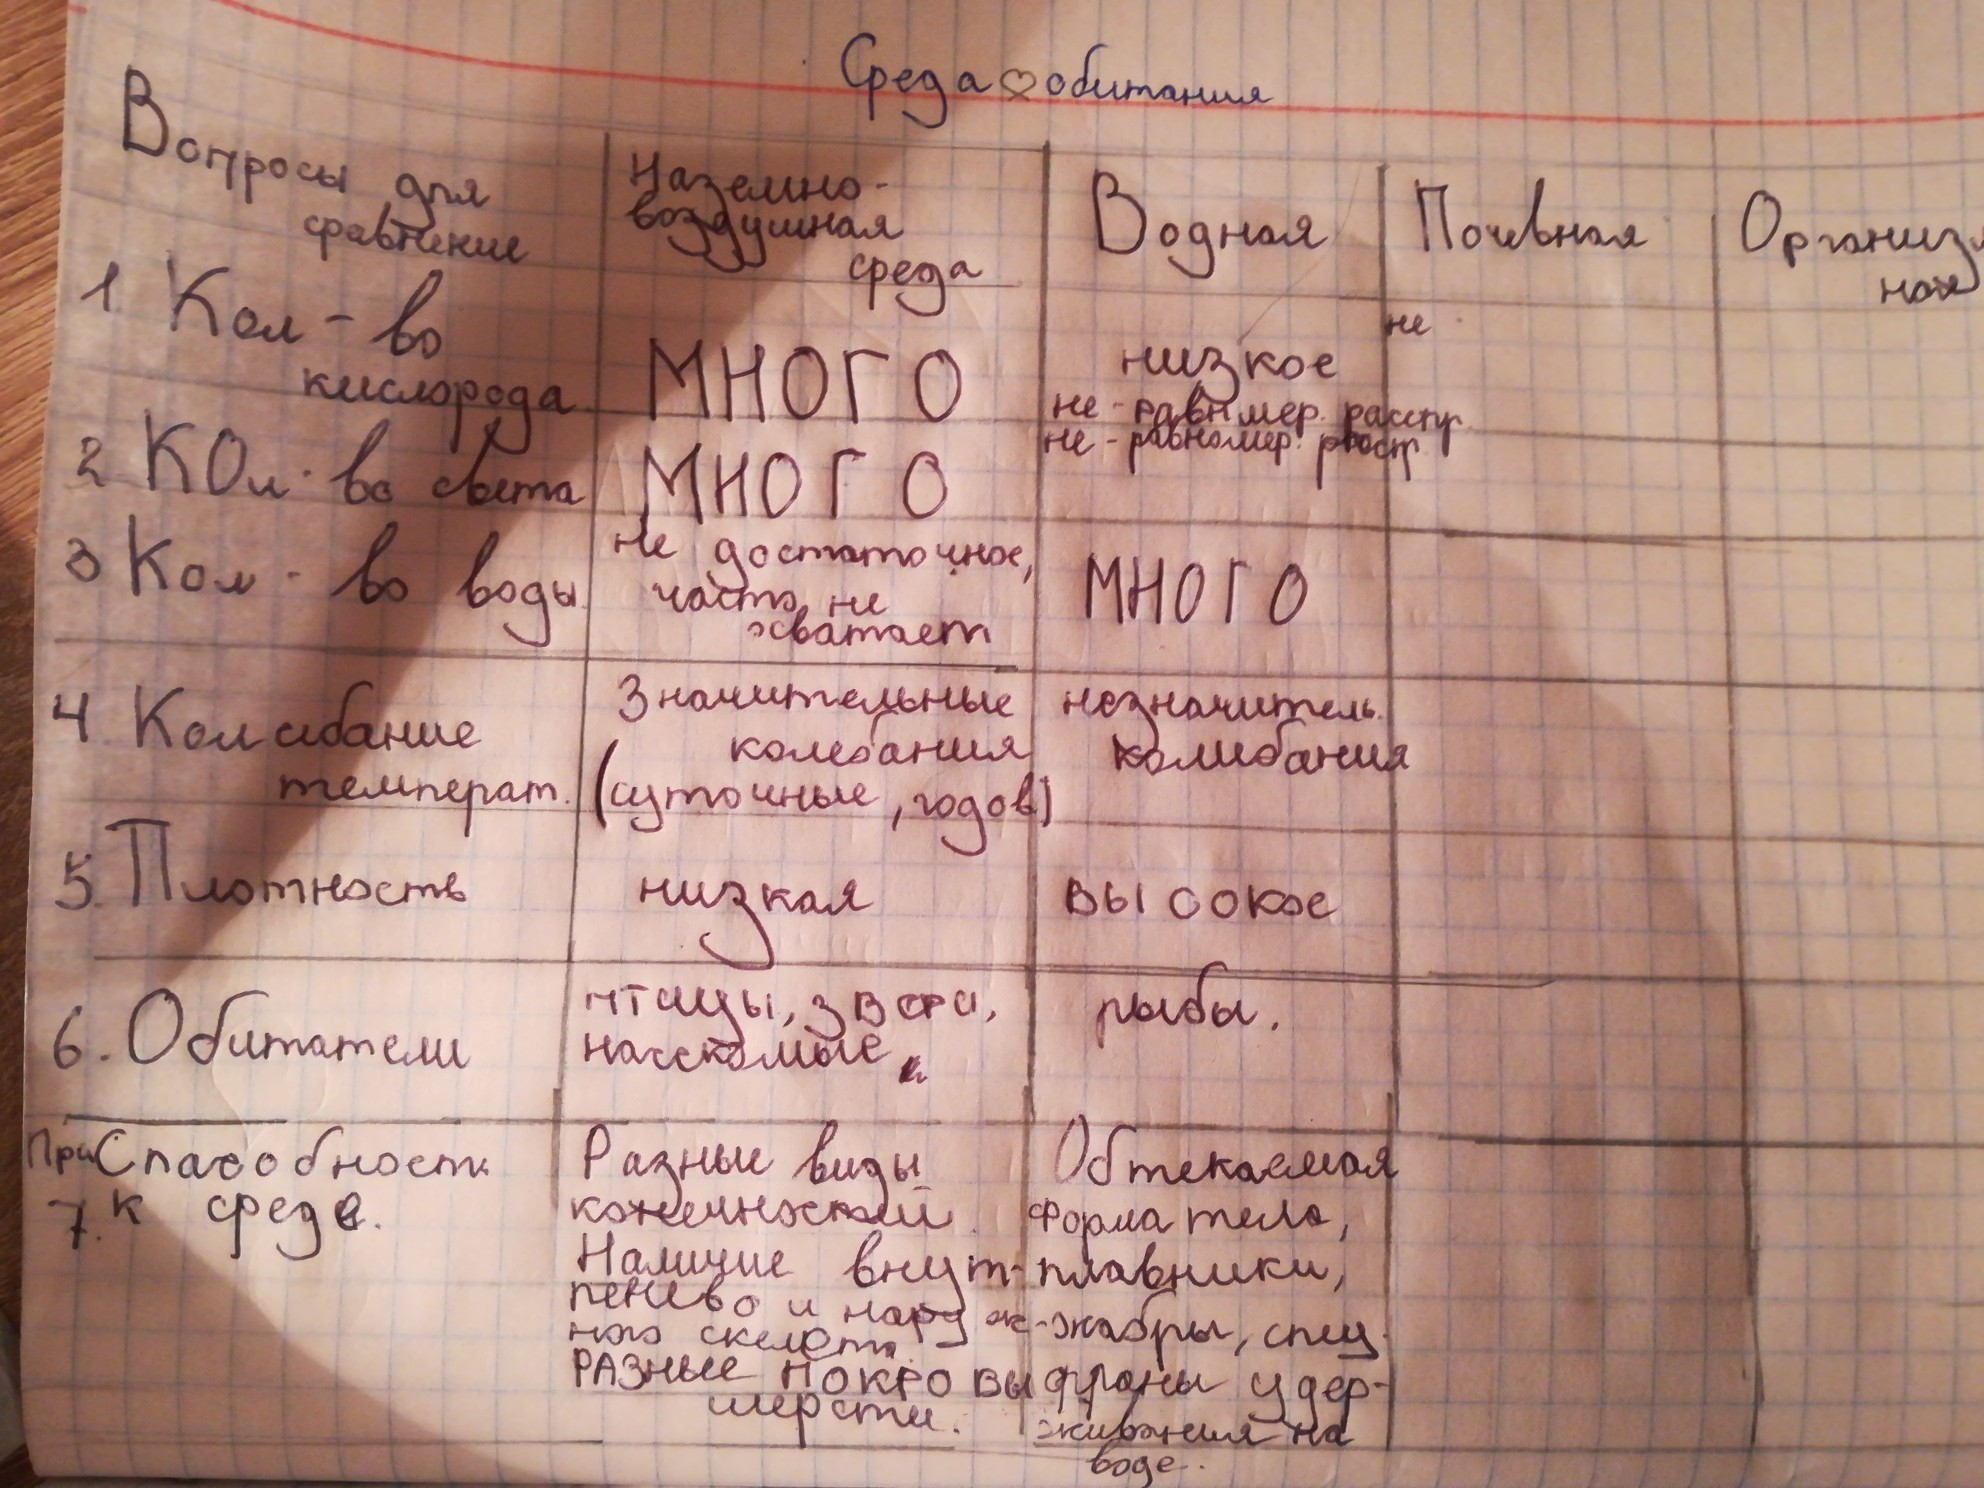 Среда обитания
Вопросы для
сравнение
Наземно-
воздушная
среда
Водная
Почвеная
Организм
ная
1. Кол-во
кислорода
МНОГО
низкое
не
2 КОл-во света
МНОГО
не-равн мер. распр.
не-равномер.
3 Кол-во воды
не достаточное,
часто не
хватает
МНОГО
4 Колебание
температ.
Значительные
колебания
(суточные, годов)
незначитель.
колибания
5. Плотность
низкая
высокое
6. Обитатели
птицы, звери,
насекомые
рыбы.
При Способность
7. к среде.
Разные виды
конечностей.
Наличие внут-
ренево и наруж-
ного скелета.
РАЗНЫЕ ПОКРОВЫ
шерсти.
Обтекаемая
форма тела,
плавники,
жабры, спец.
удер-
живания на
воде.